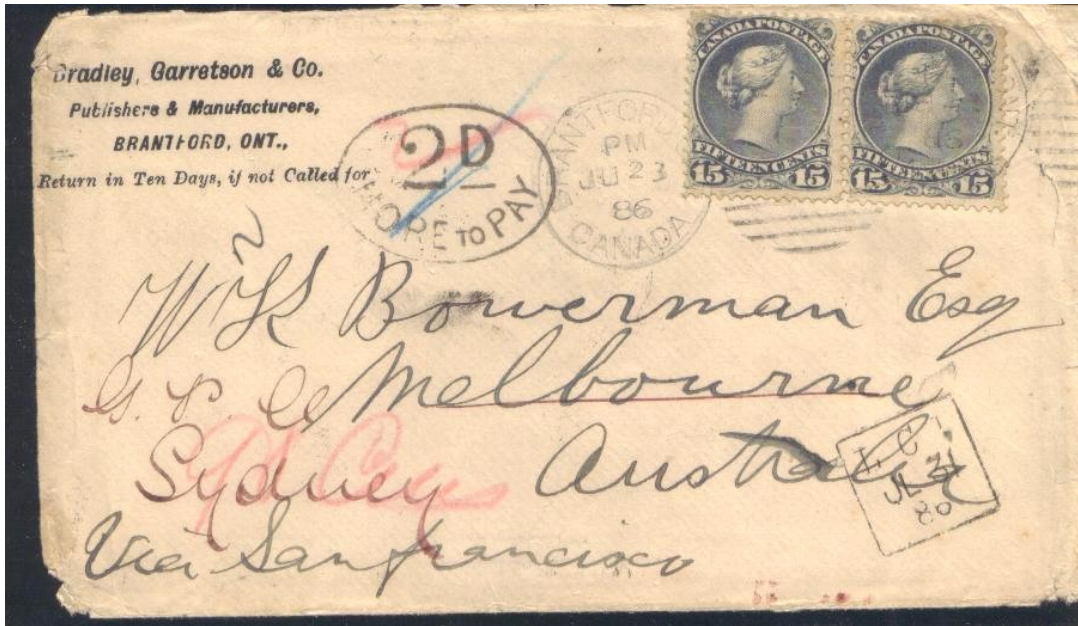 Bradley, Garretson & Co.
Publishers & Manufacturers,
BRANTFORD, ONT.,
Return in Ten Days, if not Called for
2D
MORE TO PAY
BRANTFORD
PM
JU 23
86
CANADA
CANADA POSTAGE
FIFTEEN CENTS
15 15
CANADA POSTAGE
FIFTEEN CENTS
15 15
W K Bowerman Esq
G. P. O. Melbourne
Sydney Australia
Via San francisco
JL 31